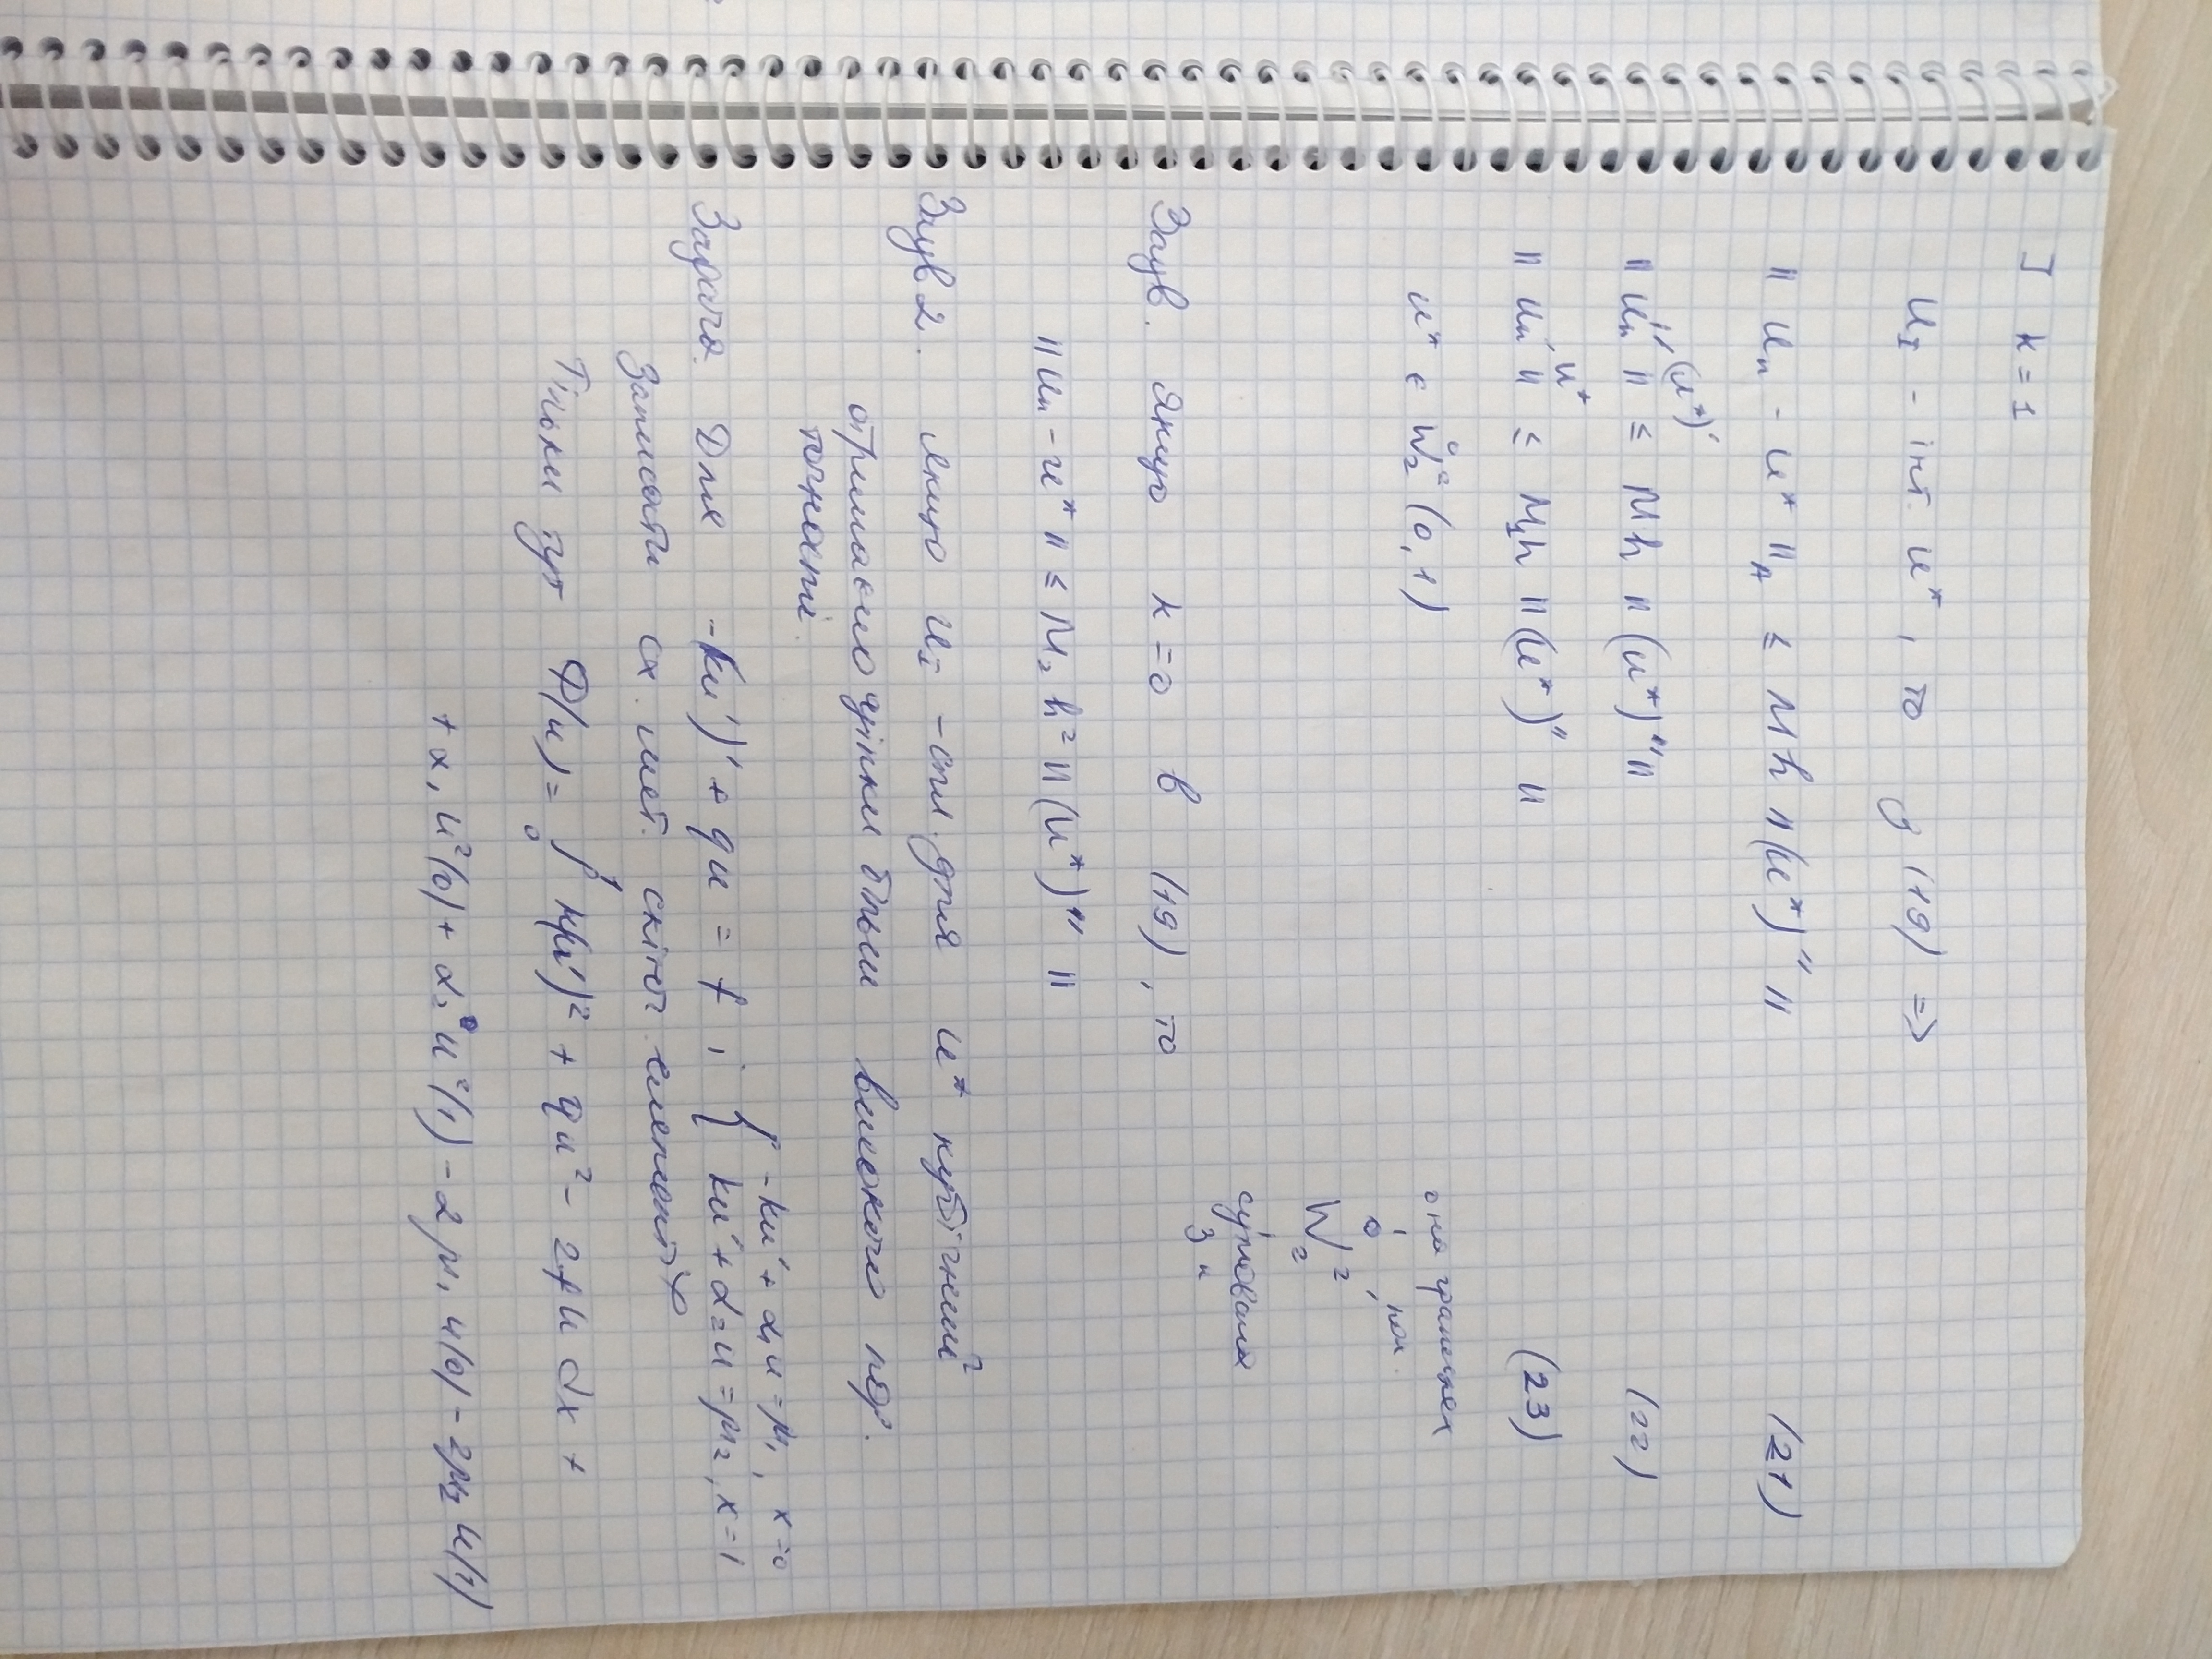 ] k = 1
u_I - інт. u*, то з (19) =>
|| u_n - u* ||_A ≤ Mh ||(u*)''|| (21)
|| u_n' - (u*)' || ≤ Mh ||(u*)''|| (22)
|| u_n - u* || ≤ M_1 h ||(u*)''|| (23)
u* ∈ W_2^2 (0, 1)
W_2^2
Заув. Якщо k = 0 в (19), то
|| u_n - u* || ≤ M_2 h^2 || (u*)'' ||
Заув 2. Якщо u_I - спл. для u* кубічний
отримаємо оцінки більш високого пор.
точності.
Задача. Для -(ku')' + qu = f і { -ku' + α_1 u = μ_1, x = 0
ku' + α_2 u = μ_2, x = 1
Записати сх. мет. скінч. елементів
Тільки тут Ф(u) = ∫_0^1 k(u')^2 + qu^2 - 2fu dx +
+ α_1 u^2(0) + α_2 u^2(1) - 2μ_1 u(0) - 2μ_2 u(1)